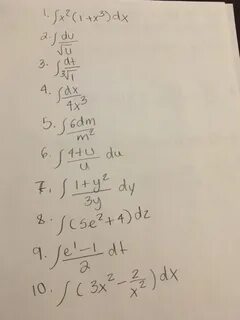 1. ∫x²(1+x³)dx
2. ∫ du/√u
3. ∫ dt/∛1
4. ∫ dx/4x³
5. ∫ 6dm/m²
6. ∫ 4+u/u du
7. ∫ 1+y²/3y dy
8. ∫(5e²+4)dz
9. ∫ e¹-1/2 dt
10. ∫(3x² - 2/x²)dx